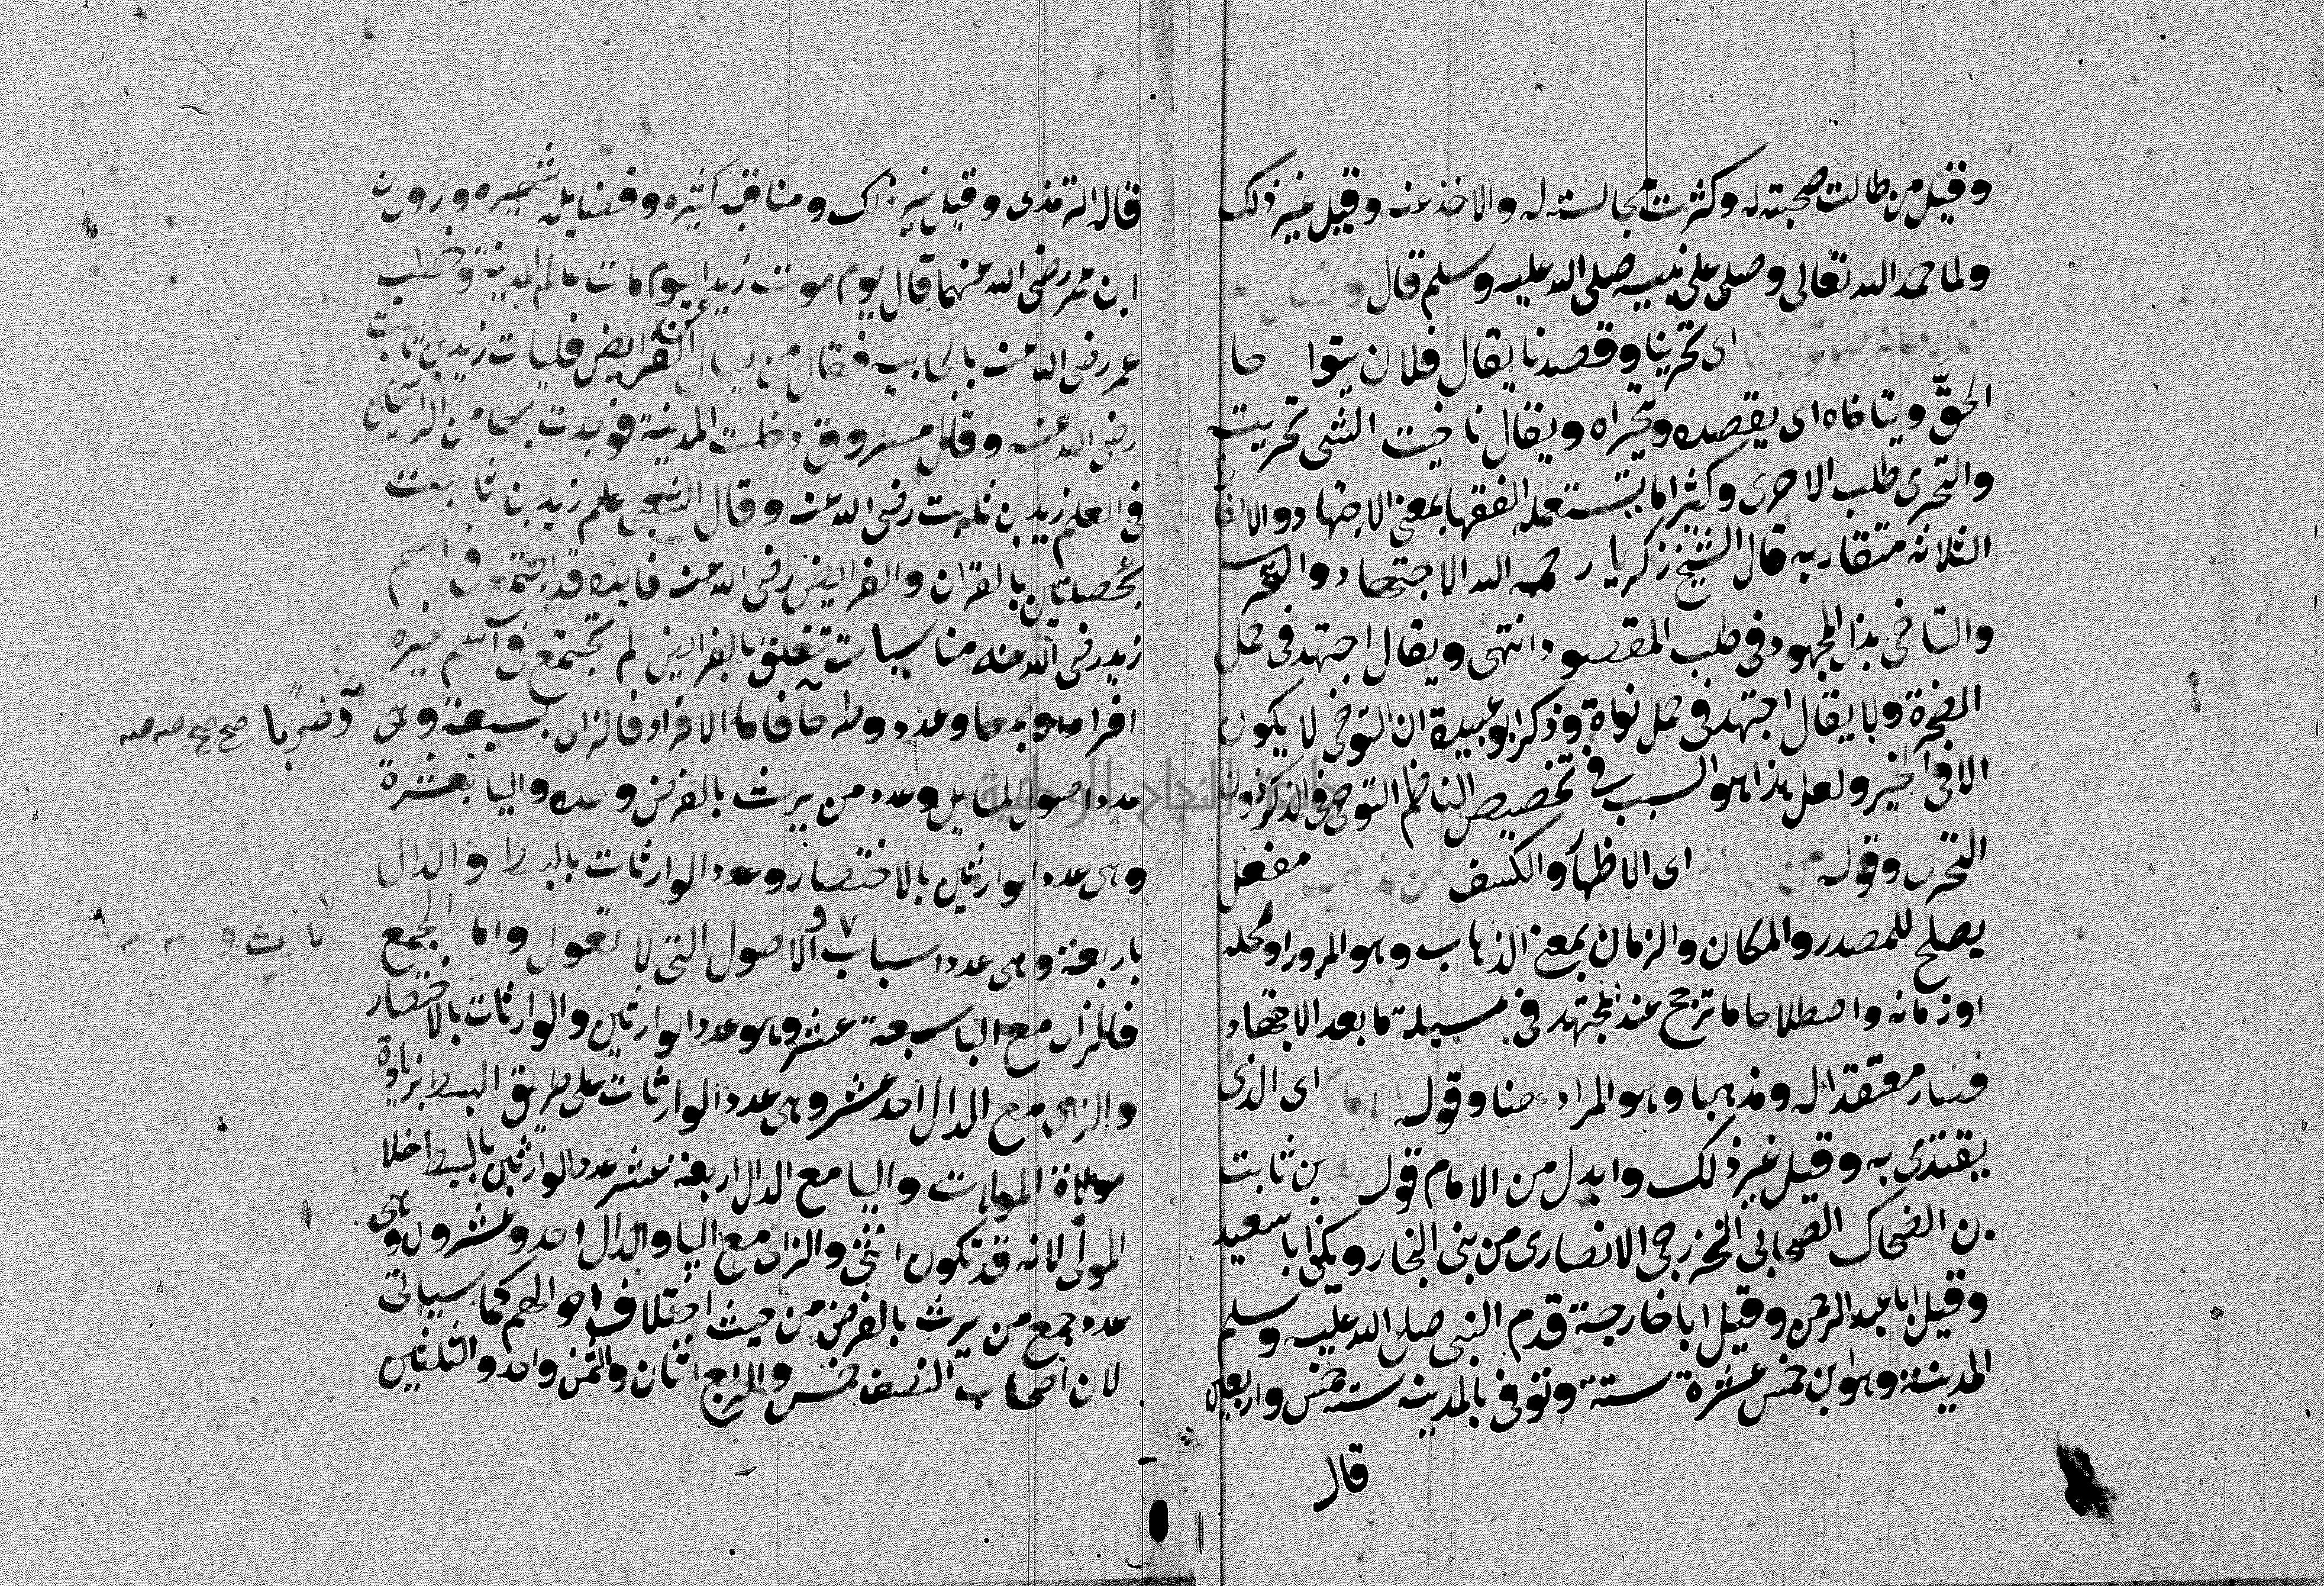 وقيل من طالت صحبته له وكثرت مجالسته له والاخذ عنه وقيل غير ذلك
ولما حمد الله تعالى وصلى على نبيه صلى الله عليه وسلم قال
اى تحرينا وقصدنا يقال فلان يتوا خا
الحقَّ ويتاخاه اى يقصده ويتحراه ويقال تاخيت الشى تحريت
والتحرى طلب الاحرى وكثيرا ما يستعمله الفقها بمعنى الاجتهاد والالفاظ
الثلاثه متقاربه قال الشيخ زكريا رحمه الله الاجتهاد والتحرى
والتاخى بذل المجهود فى طلب المقصود انتهى ويقال اجتهد فى حمل
الصخرة ولا يقال اجتهد فى حمل نواة وذكر ابو عبيدة ان التوخى لا يكون
الا فى الخير ولعل هذا هو السبب فى تخصيص الناظم التوخى فى الذكر دون
التحرى وقوله من اى الاظهار والكشف مفعل
يصلح للمصدر والمكان والزمان بمعنى الذهاب وهو المرور او محله
او زمانه واصطلاحا ما ترجح عند المجتهد فى مسيلة ما بعد الاجتهاد
فصار معتقدا له ومذهبا وهو المراد هنا وقوله اى الذى
يقتدى به وقيل غير ذلك وابدل من الامام قوله بن ثابت
بن الضحاك الصحابى الخزرجى الانصارى من بنى النجار ويكنى ابا سعيد
وقيل ابا عبد الرحمن وقيل ابا خارجة قدم النبى صلى الله عليه وسلم
المدينة وهو ابن خمس عشرة سنة وتوفى بالمدينه سنه خمس واربعين
قال
قاله الترمذى وقيل غير ذلك ومناقبه كثيره وفضايله شهيره وروى ان
ابن عمر رضى الله عنهما قال يوم موت زيد اليوم مات عالم المدينة وخطب
عمر رضى الله عنه بالجابيه فقال من يسال عن الفرايض فليات زيد بن ثابت
رضى الله عنه وقال مسروق دخلت المدينة فوجدت بها من الراسخين
فى العلم زيد بن ثابت رضى الله عنه وقال الشعبى علم زيد بن ثابت
بخصلتين بالقران والفرايض رضى الله عنه فايده قد اجتمع فى اسم
زيد رضى الله عنه مناسبات تتعلق بالفرايض لم تجتمع فى اسم غيره
افرادا وجمعا وعددا وطرحا فاما الافراد فالزاى بسبعة وهى
وضربا صح صح صح
عدد اصول المسايل وعدد من يرث بالفرض وحده واليا بعشرة
وهى عدد الوارثين بالاختصار وعدد الوارثات بالبسط والدال
باربعة وهى عدد اسباب الاصول التى لا تعول واما الجمع
فالزاى مع اليا سبعة عشر وهو عدد الوارثين والوارثات بالاختصار
والزاى مع الدال احد عشر وهى عدد الوارثات على طريق البسط بزيادة
مولاة المولات واليا مع الدال اربعة عشر عدد الوارثين بالبسط اخلا
المولى لانه قد تكون انثى والزاى مع اليا والدال احد وعشرون وهى
عدد جمع من يرث بالفرض من حيث اختلاف احوالهم كما سياتى
لان اصحاب النصف خمس والربع اثنان والثمن واحد والثلثين